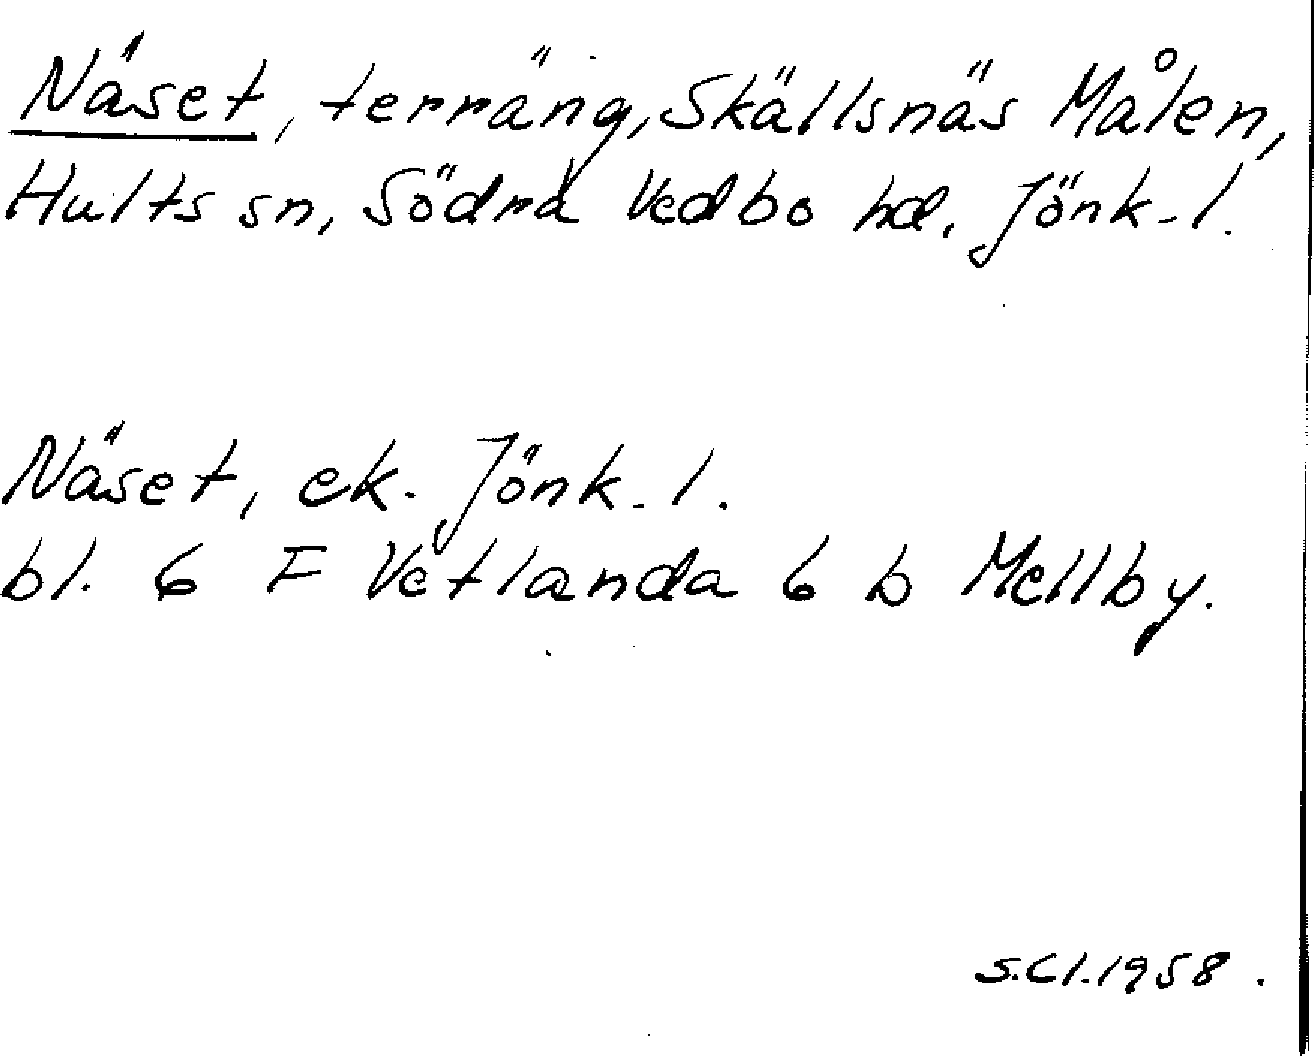 Näset, terräng, Skällsnäs Målen,
Hults sn, Södra Vedbo hd, Jönk-l.
Näset, ek. Jönk-l.
bl. 6 F Vetlanda 6 b Mellby.
S.Cl.1958.